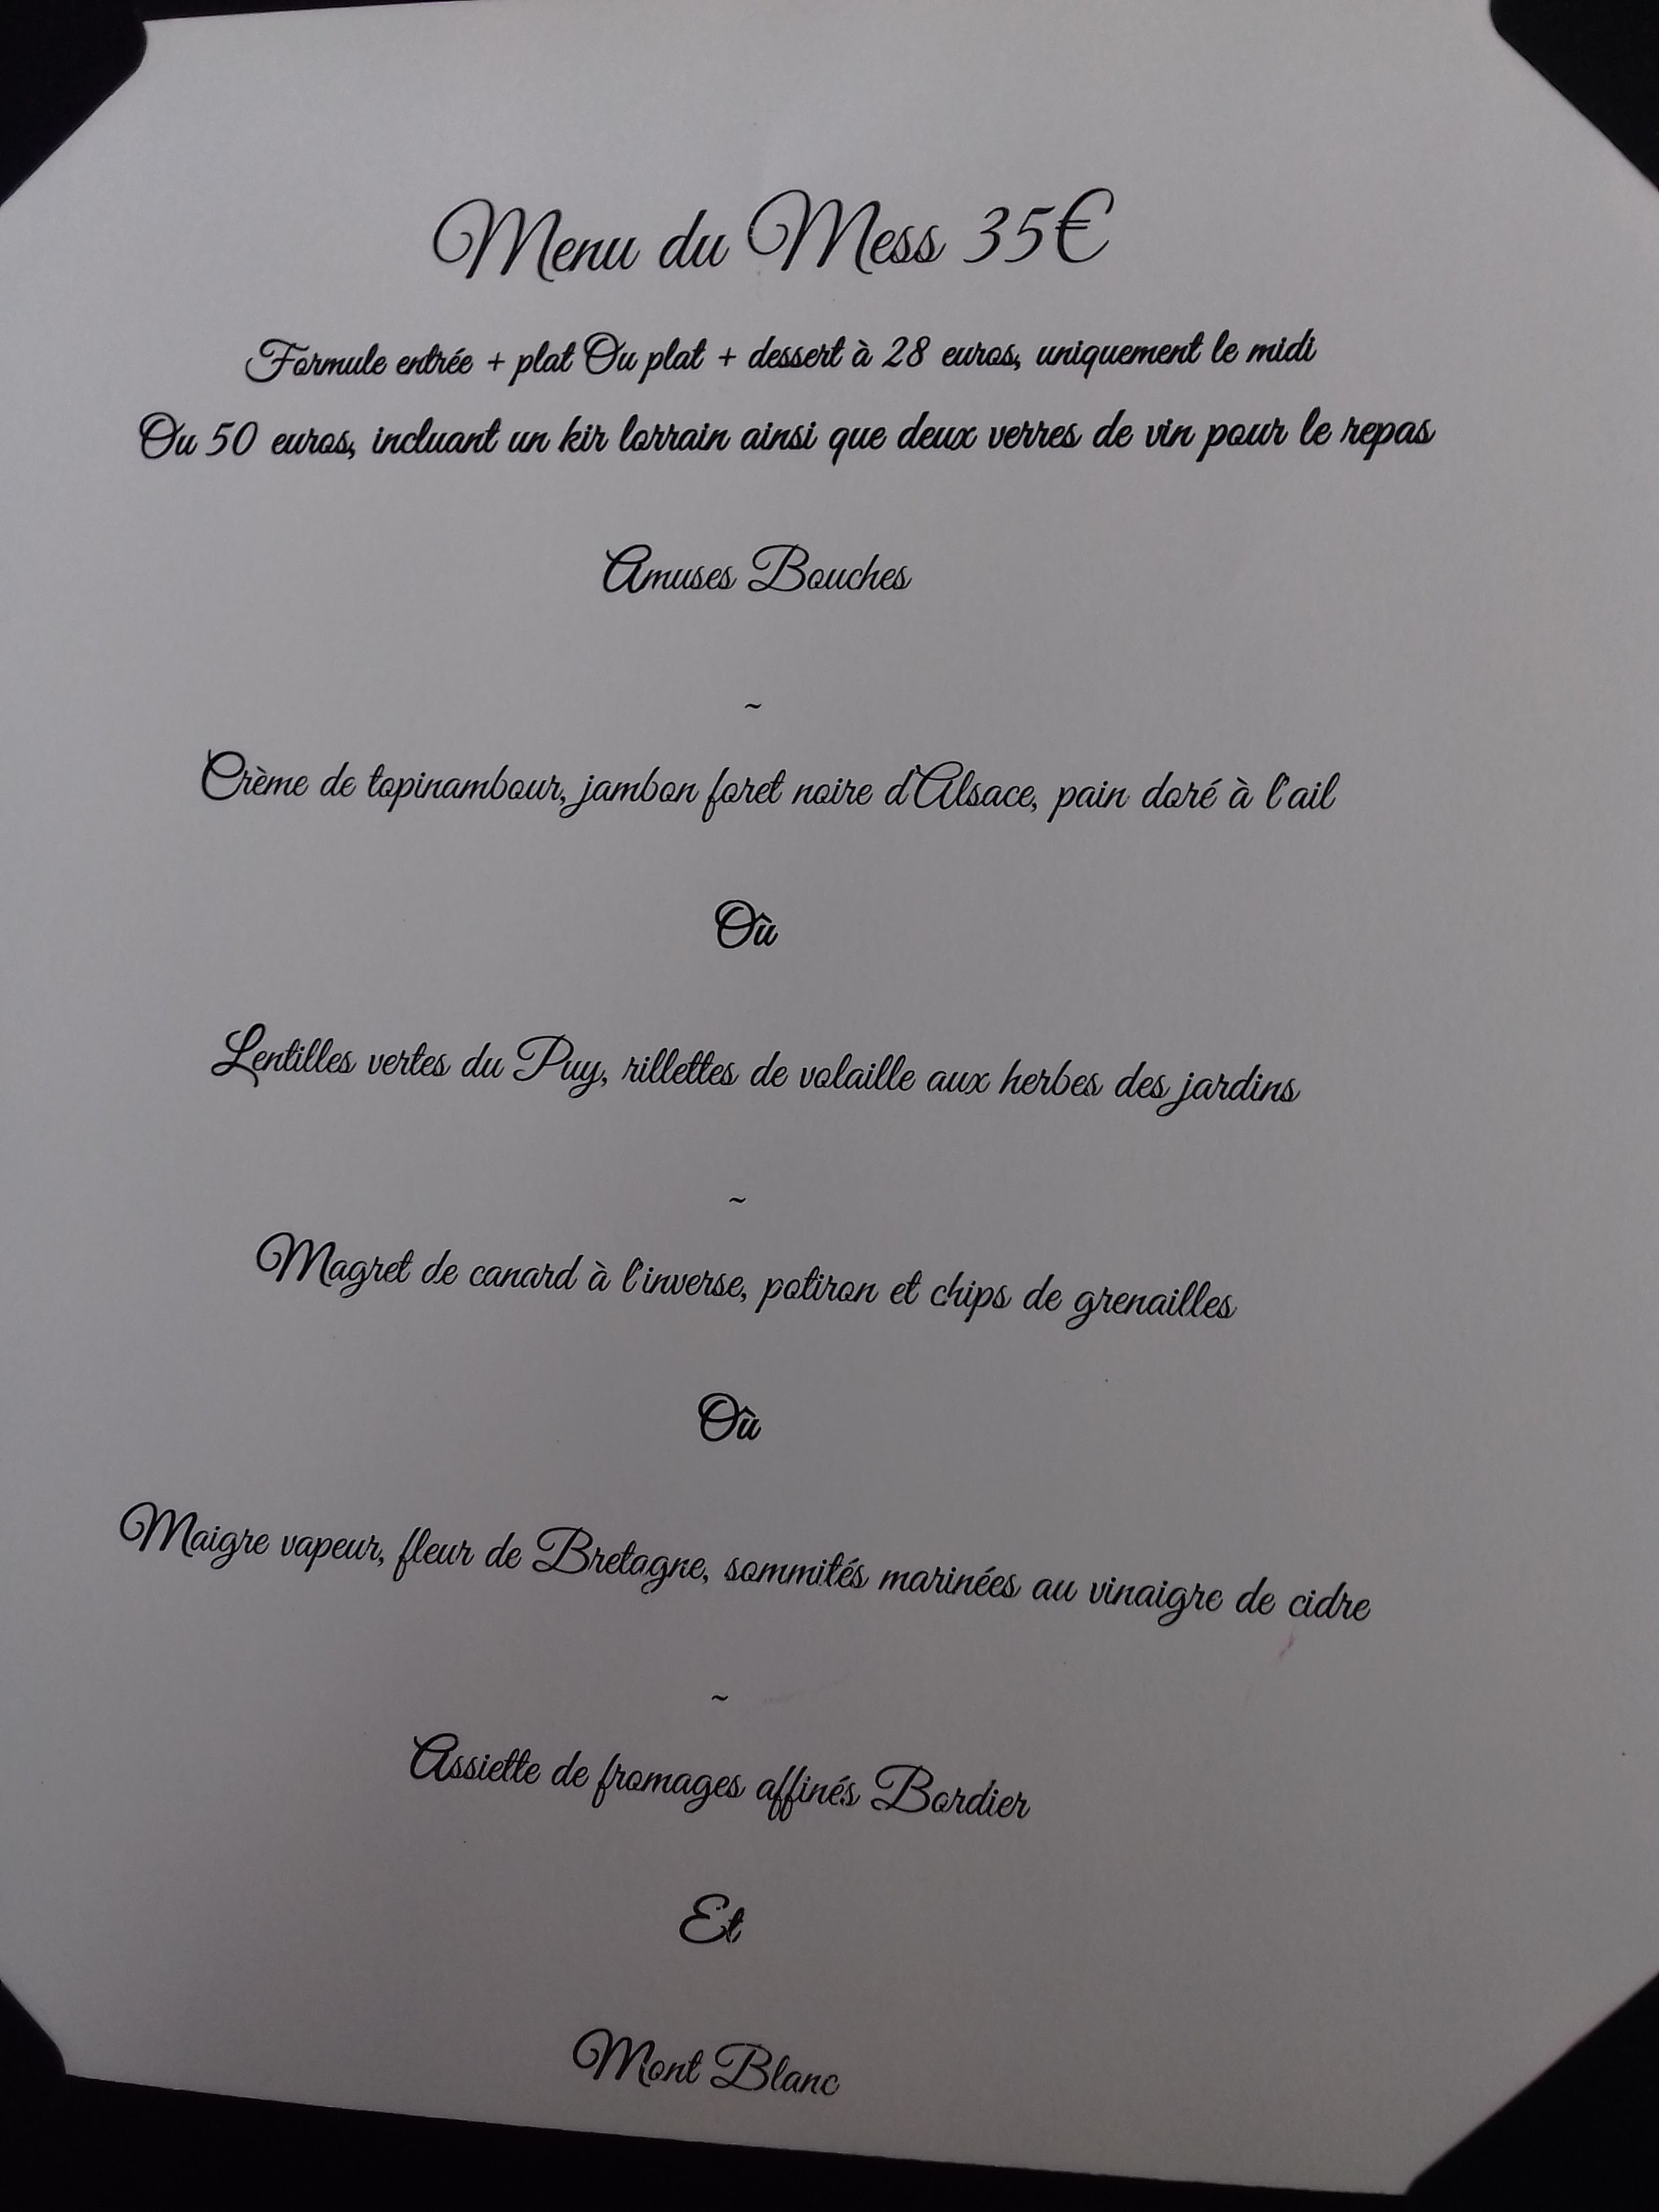 Menu du Mess 35€
Formule entrée + plat Ou plat + dessert à 28 euros, uniquement le midi
Ou 50 euros, incluant un kir lorrain ainsi que deux verres de vin pour le repas
Amuses Bouches
~
Crème de topinambour, jambon foret noire d'Alsace, pain doré à l'ail
Où
Lentilles vertes du Puy, rillettes de volaille aux herbes des jardins
~
Magret de canard à l'inverse, potiron et chips de grenailles
Où
Maigre vapeur, fleur de Bretagne, sommités marinées au vinaigre de cidre
~
Assiette de fromages affinés Bordier
Et
Mont Blanc